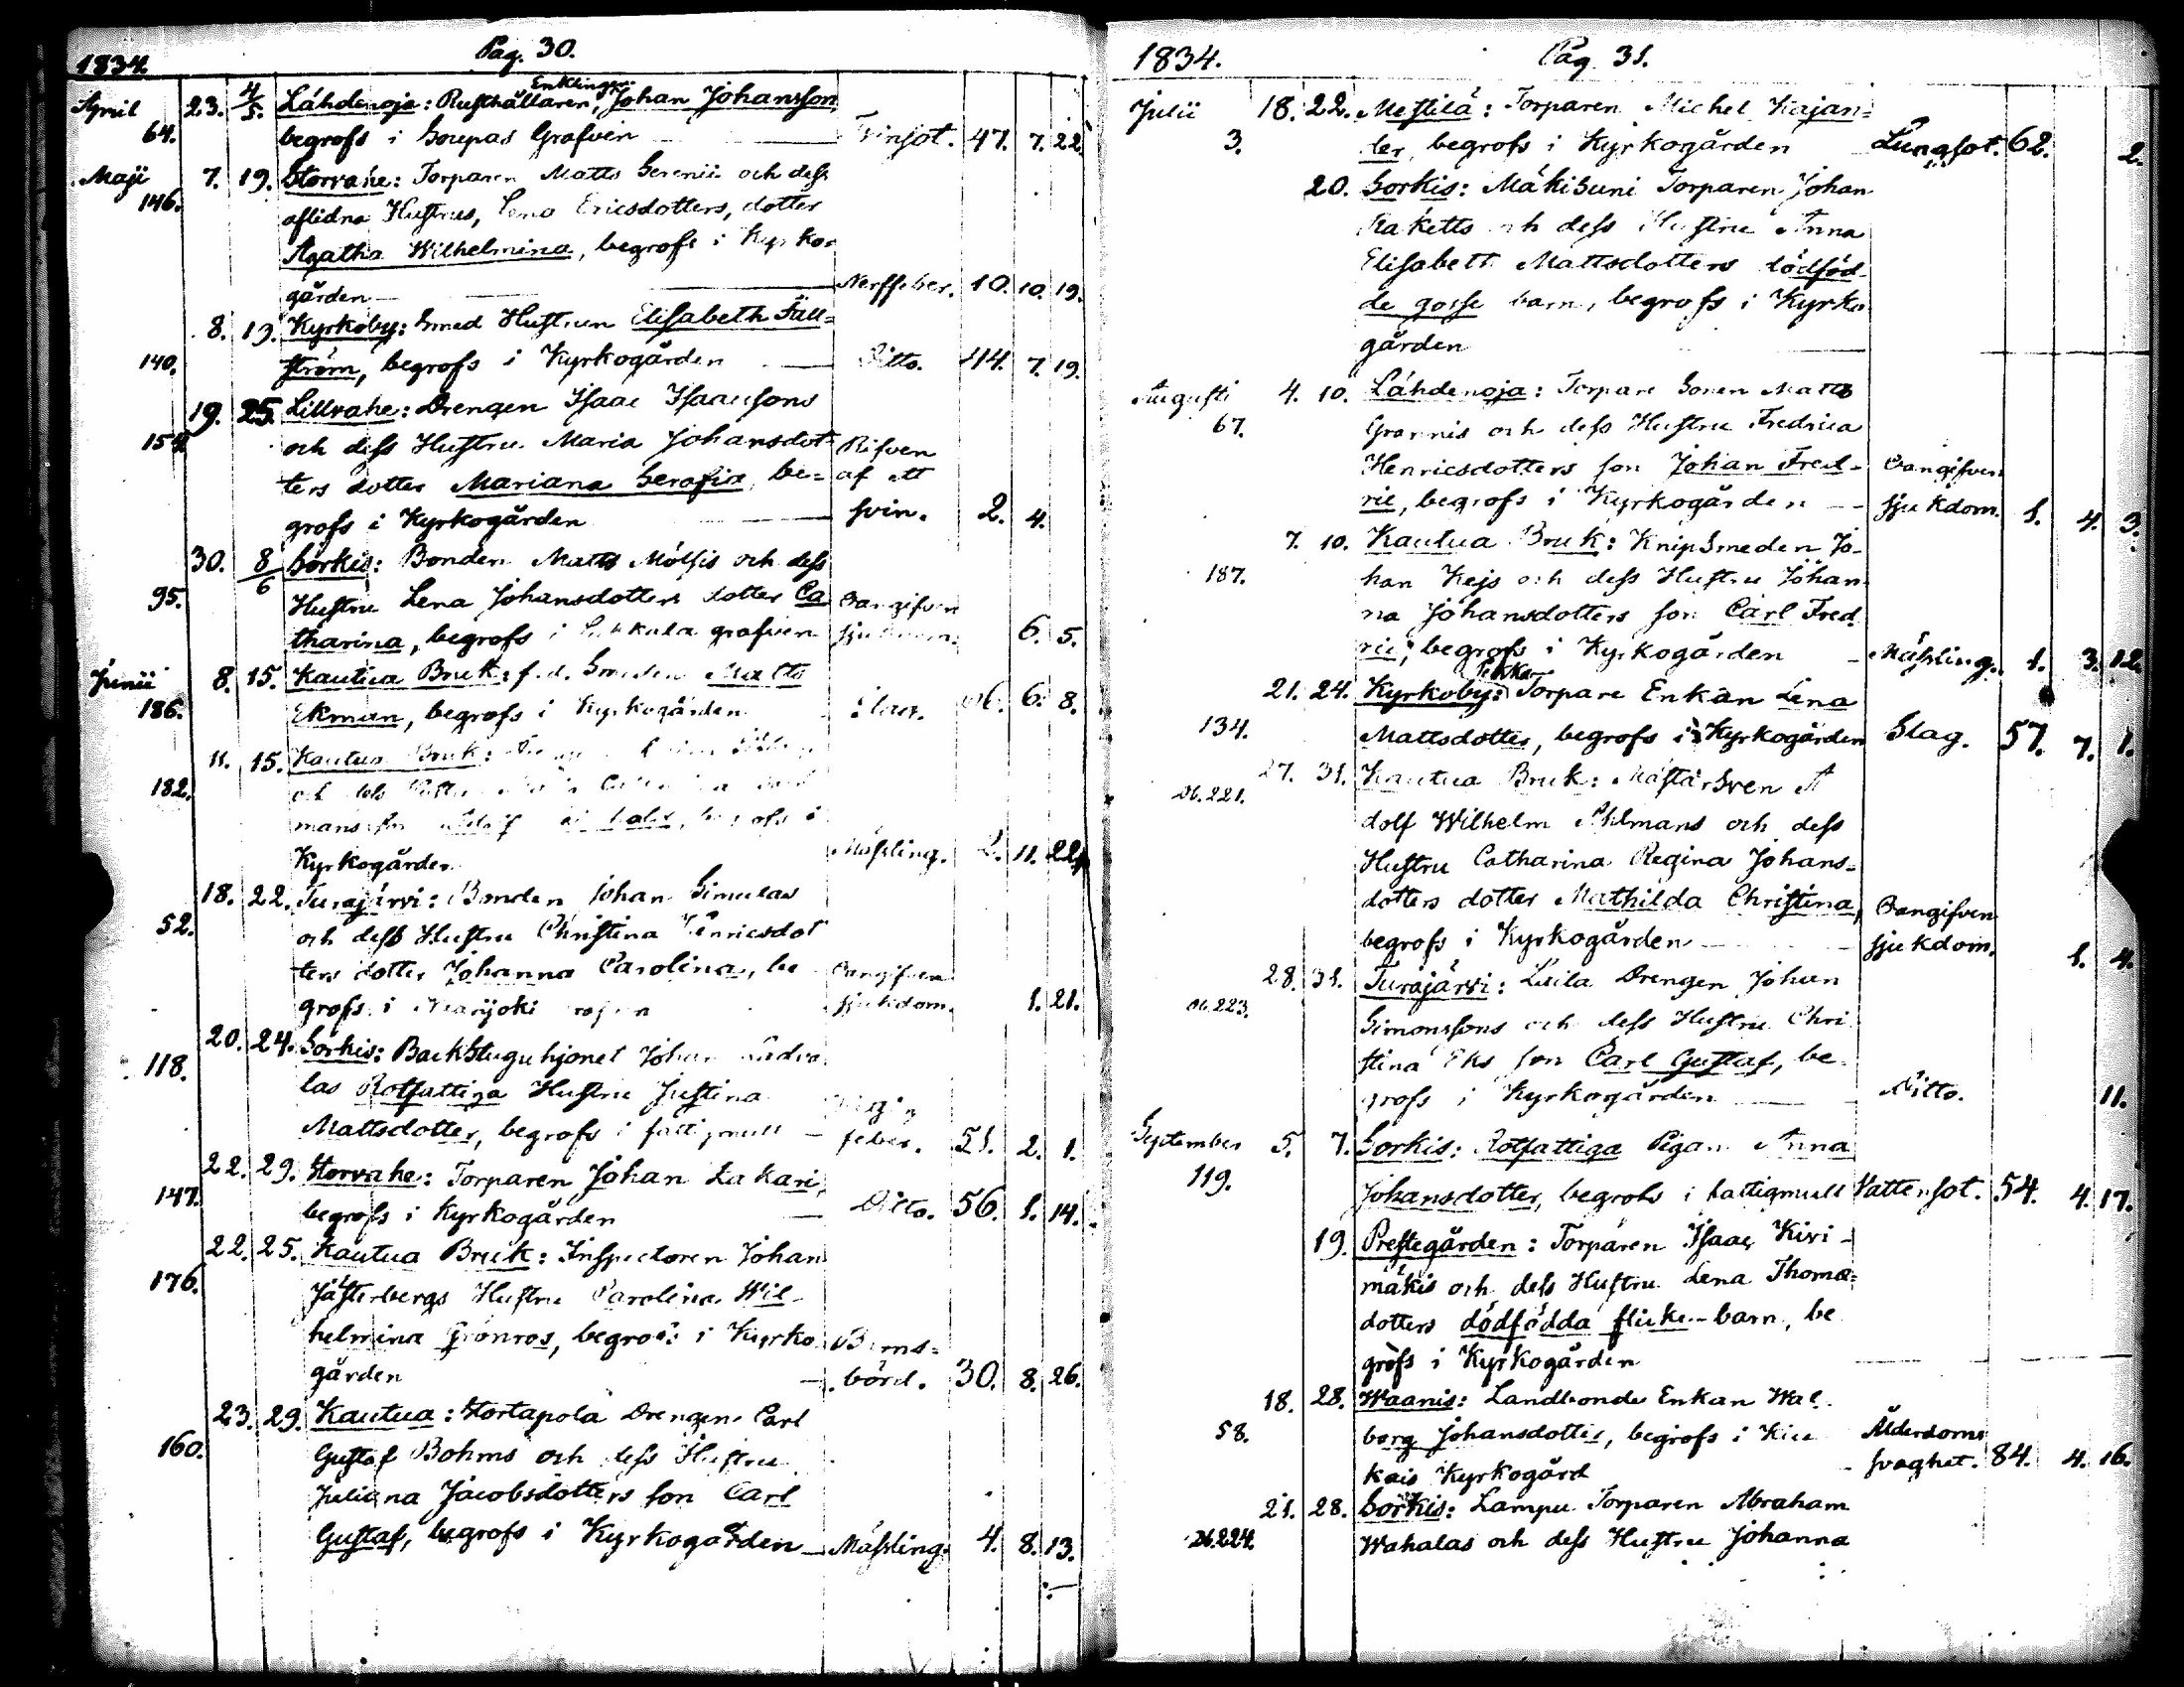 1834.
Pag. 30.
April 23. 4/5. Lähdenoja: Rusthållaren, Enklingen Johan Johansson
64. begrofs i Soupas Grafven Tvinsot. 47. 7. 22.
Maji 7. 19. Storvahe: Torparen Matts Serenii och dess
146. aflidna Hustrus, Lena Ericsdotters, dotter
Agatha Wilhelmina, begrofs i Kyrko-
gården Nerffeber. 10. 10. 19.
8. 19. Kyrkoby: Smed Hustrun Elisabeth Fäll-
140. ström, begrofs i Kyrkogården Ditto. 44. 7. 19.
19. 25. Lillvahe: Drengen Isaac Isaacsons
154. och dess Hustru Maria Johansdot- Rifven
ters dotter Mariana Serafia, be- af ett
grofs i Kyrkogården svin. 2. 4.
30. 8/6 Sorkis: Bonden Matts Mölsis och dess
95. Hustru Lena Johansdotters dotter Ca Oangifven
tharina, begrofs i grafven sjukdom. 6. 5.
Junii 8. 15. Kautua Bruk: f.d. Smeden Matts
186. Ekman, begrofs i Kyrkogården Slag. 6. 8.
11. 15. Kautua Bruk:
182. och dess
mans son begrofs i
Kyrkogården Mässling. 2. 11. 22.
18. 22. Turajärvi: Bonden Johan Simulas
52. och dess Hustru Christina Henricsdot
ters dotter Johanna Carolina, be Oangifven
grofs i sjukdom. 1. 21.
20. 24. Sorkis: Backstuguhjonet Johan
118. las Rotfattiga Hustru Justina
Mattsdotter, begrofs i fattigmull feber. 51. 2. 1.
22. 29. Storvahe: Torparen Johan Lakari,
147. begrofs i Kyrkogården Ditto. 56. 1. 14.
22. 25. Kautua Bruk: Inspectoren Johan
176. Jästerbergs Hustru Carolina Wil-
helmina Grönros, begrofs i Kyrko Barns-
gården börd. 30. 8. 26.
23. 29. Kautua: Stortapola Drengen Carl
160. Gustaf Bohms och dess Hustru
Juliana Jacobsdotters son Carl
Gustaf, begrofs i Kyrkogården Mässling. 4. 8. 13.
1834.
Pag. 31.
Julii 18. 22. Mestilä: Torparen Michel Kajan-
3. der, begrofs i Kyrkogården Lungsot. 62. 2.
20. Sorkis: Mäkisuni Torparen Johan
Raketts och dess Hustru Anna
Elisabeth Mattsdotters dödföd-
de gosse barn, begrofs i Kyrko
gården
Augusti 4. 10. Lähdenoja: Torpare Sonen Matts
67. Grannis och dess Hustru Fredrica
Henricsdotters son Johan Fred- Oangifven
ric, begrofs i Kyrkogården sjukdom. 1. 4. 3.
7. 10. Kautua Bruk: Knipsmeden Jo-
187. han Kejs och dess Hustru Johan
na Johansdotters son Carl Fred
ric, begrofs i Kyrkogården Mässling. 1. 3. 12.
21. 24. Kyrkoby: Torpare Enkan Lena
134. Mattsdotter, begrofs i Kyrkogården Slag. 57. 7. 1.
27. 31. Kautua Bruk: Mästarsven A
221. dolf Wilhelm Ahlmans och dess
Hustru Catharina Regina Johans-
dotters dotter Mathilda Christina, Oangifven
begrofs i Kyrkogården sjukdom. 1. 4.
28. 31. Turajärvi: Luila Drengen Johan
223. Simonssons och dess Hustru Chri
stina Eks son Carl Gustaf, be-
grofs i Kyrkogården Ditto. 11.
September 5. 7. Sorkis: Rotfattiga Pigan Anna
119. Johansdotter, begrofs i fattigmull Vattensot. 54. 4. 17.
19. Prestegården: Torparen Isaac Kivi-
mäkis och dess Hustru Lena Thomæ-
dotters dödfödda flicke-barn, be
grofs i Kyrkogården
18. 28. Waanis: Landbonde Enkan Wal
58. borg Johansdotter, begrofs i Kiu Ålderdoms
kais Kyrkogård svaghet. 84. 4. 16.
21. 28. Sorkis: Lampu Torparen Abraham
224. Wahalas och dess Hustru Johanna